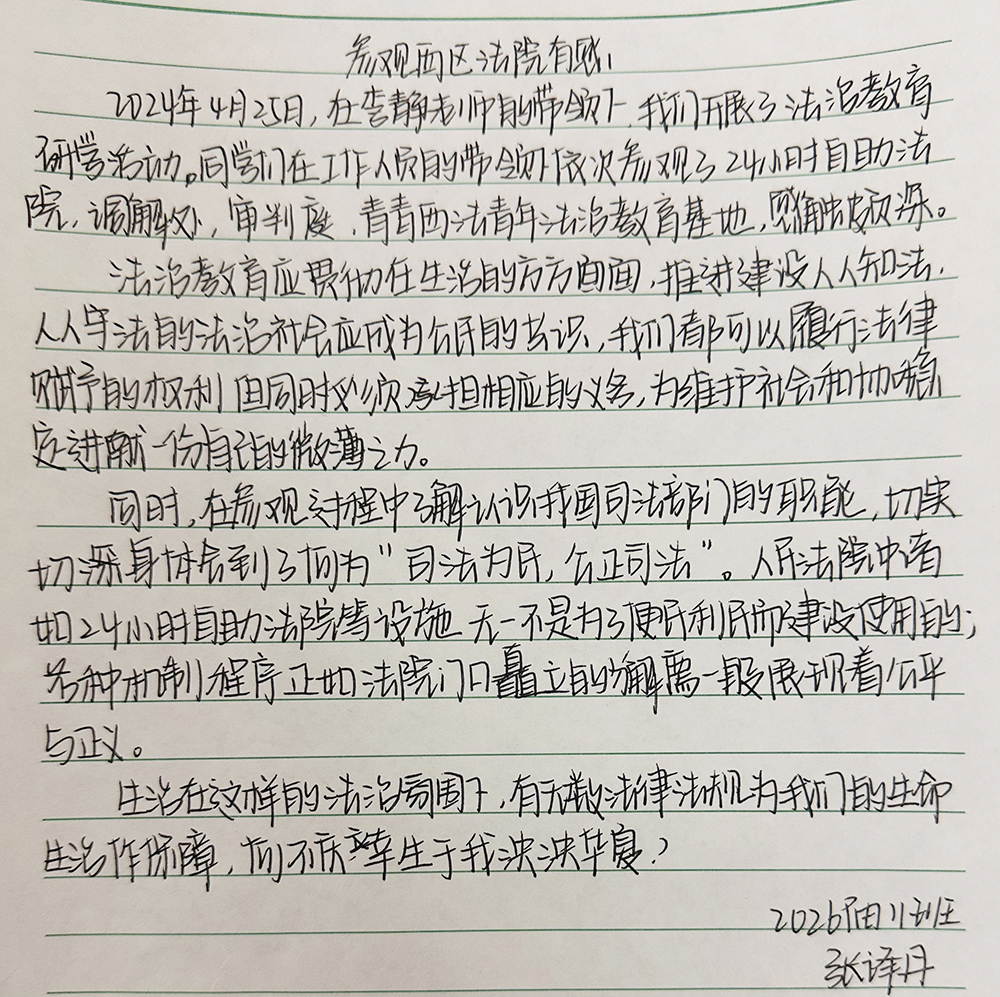 参观西区法院有感
2024年4月25日，在李静老师的带领下，我们开展了法治教育
研学活动。同学们在工作人员的带领下依次参观了24小时自助法
院，调解处，审判庭，青青西法青年法治教育基地，感触颇深。
法治教育应贯彻在生活的方方面面，推进建设人人知法，
人人守法的法治社会应成为公民的共识，我们都可以履行法律
赋予的权利但同时必须承担相应的义务，为维护社会和协稳
定进献一份自己的微薄之力。
同时，在参观过程中了解认识我国司法部门的职能，切实
切深身体会到了何为"司法为民，公正司法"。人民法院中诸
如24小时自助法院等设施无一不是为了便民利民而建设使用的；
各种机制程序正如法院门口矗立的獬豸一般展现着公平
与正义。
生活在这样的法治氛围下，有无数法律法规为我们的生命
生活作保障，何不庆幸生于我泱泱华夏？
2026届11班
张译丹